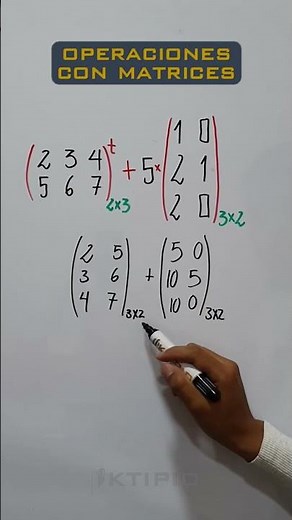 OPERACIONES
CON MATRICES
(2 3 4
5 6 7)ᵗ 2x3 + 5x (1 0
2 1
2 0) 3x2
(2 5
3 6
4 7) 3x2 + (5 0
10 5
10 0) 3x2
KTIPIO